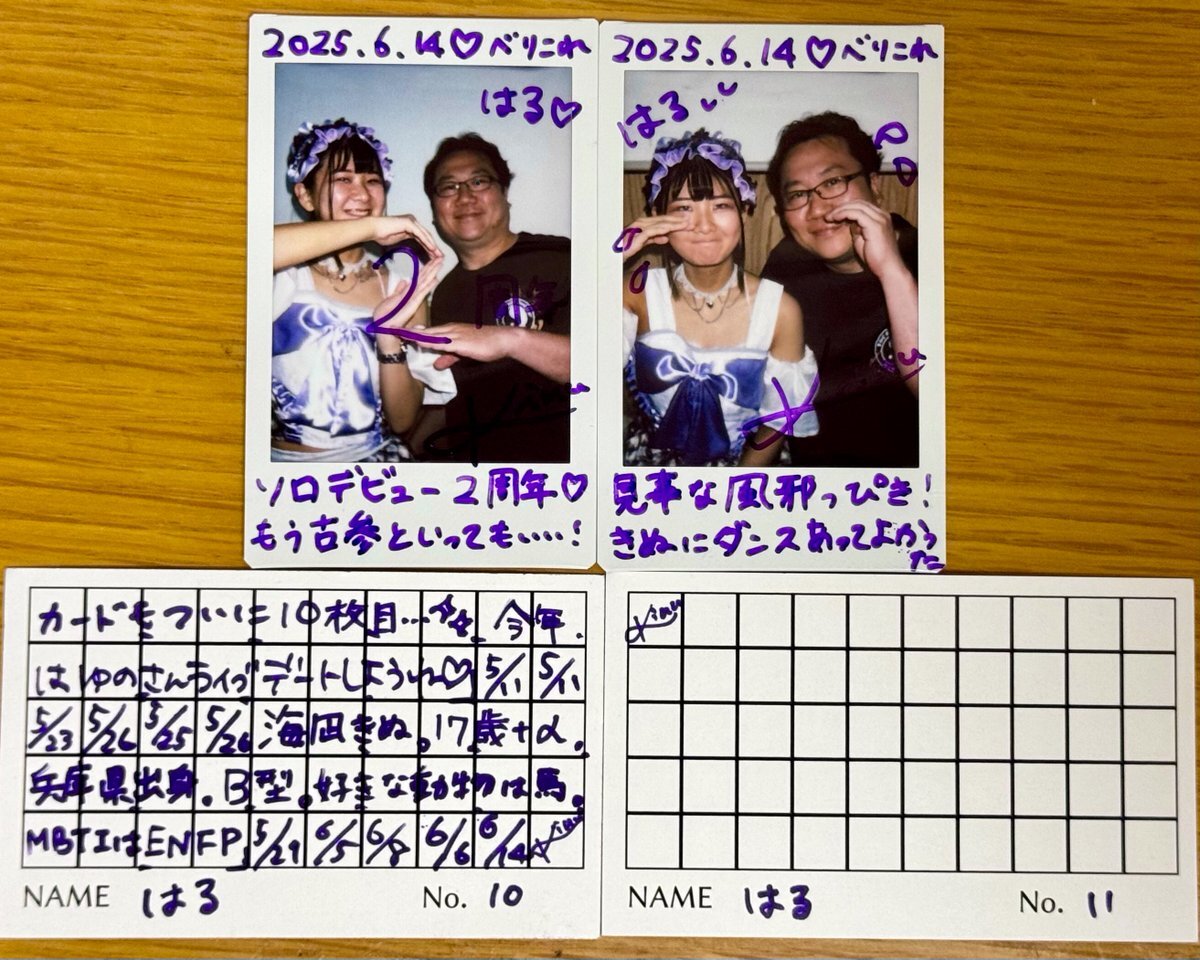 2025.6.14♡べりこれ
はる♡
2周年
Kinu
ソロデビュー2周年♡
もう古参といっても‥‥!
2025.6.14♡べりこれ
はる
Kinu
見事な風邪っぴき!
きぬにダンスあってよかった
カードもついに10枚目…今年.
はゆのさんライブデートしようね♡5/11 5/11
5/23 5/26 5/25 5/26 海凪きぬ。17歳+α.
兵庫県出身.B型。好きな動物は馬.
MBTIはENFP」5/29 6/5 6/8 6/6 6/14 Kinu
NAME はる No. 10
Kinu
NAME はる No. 11